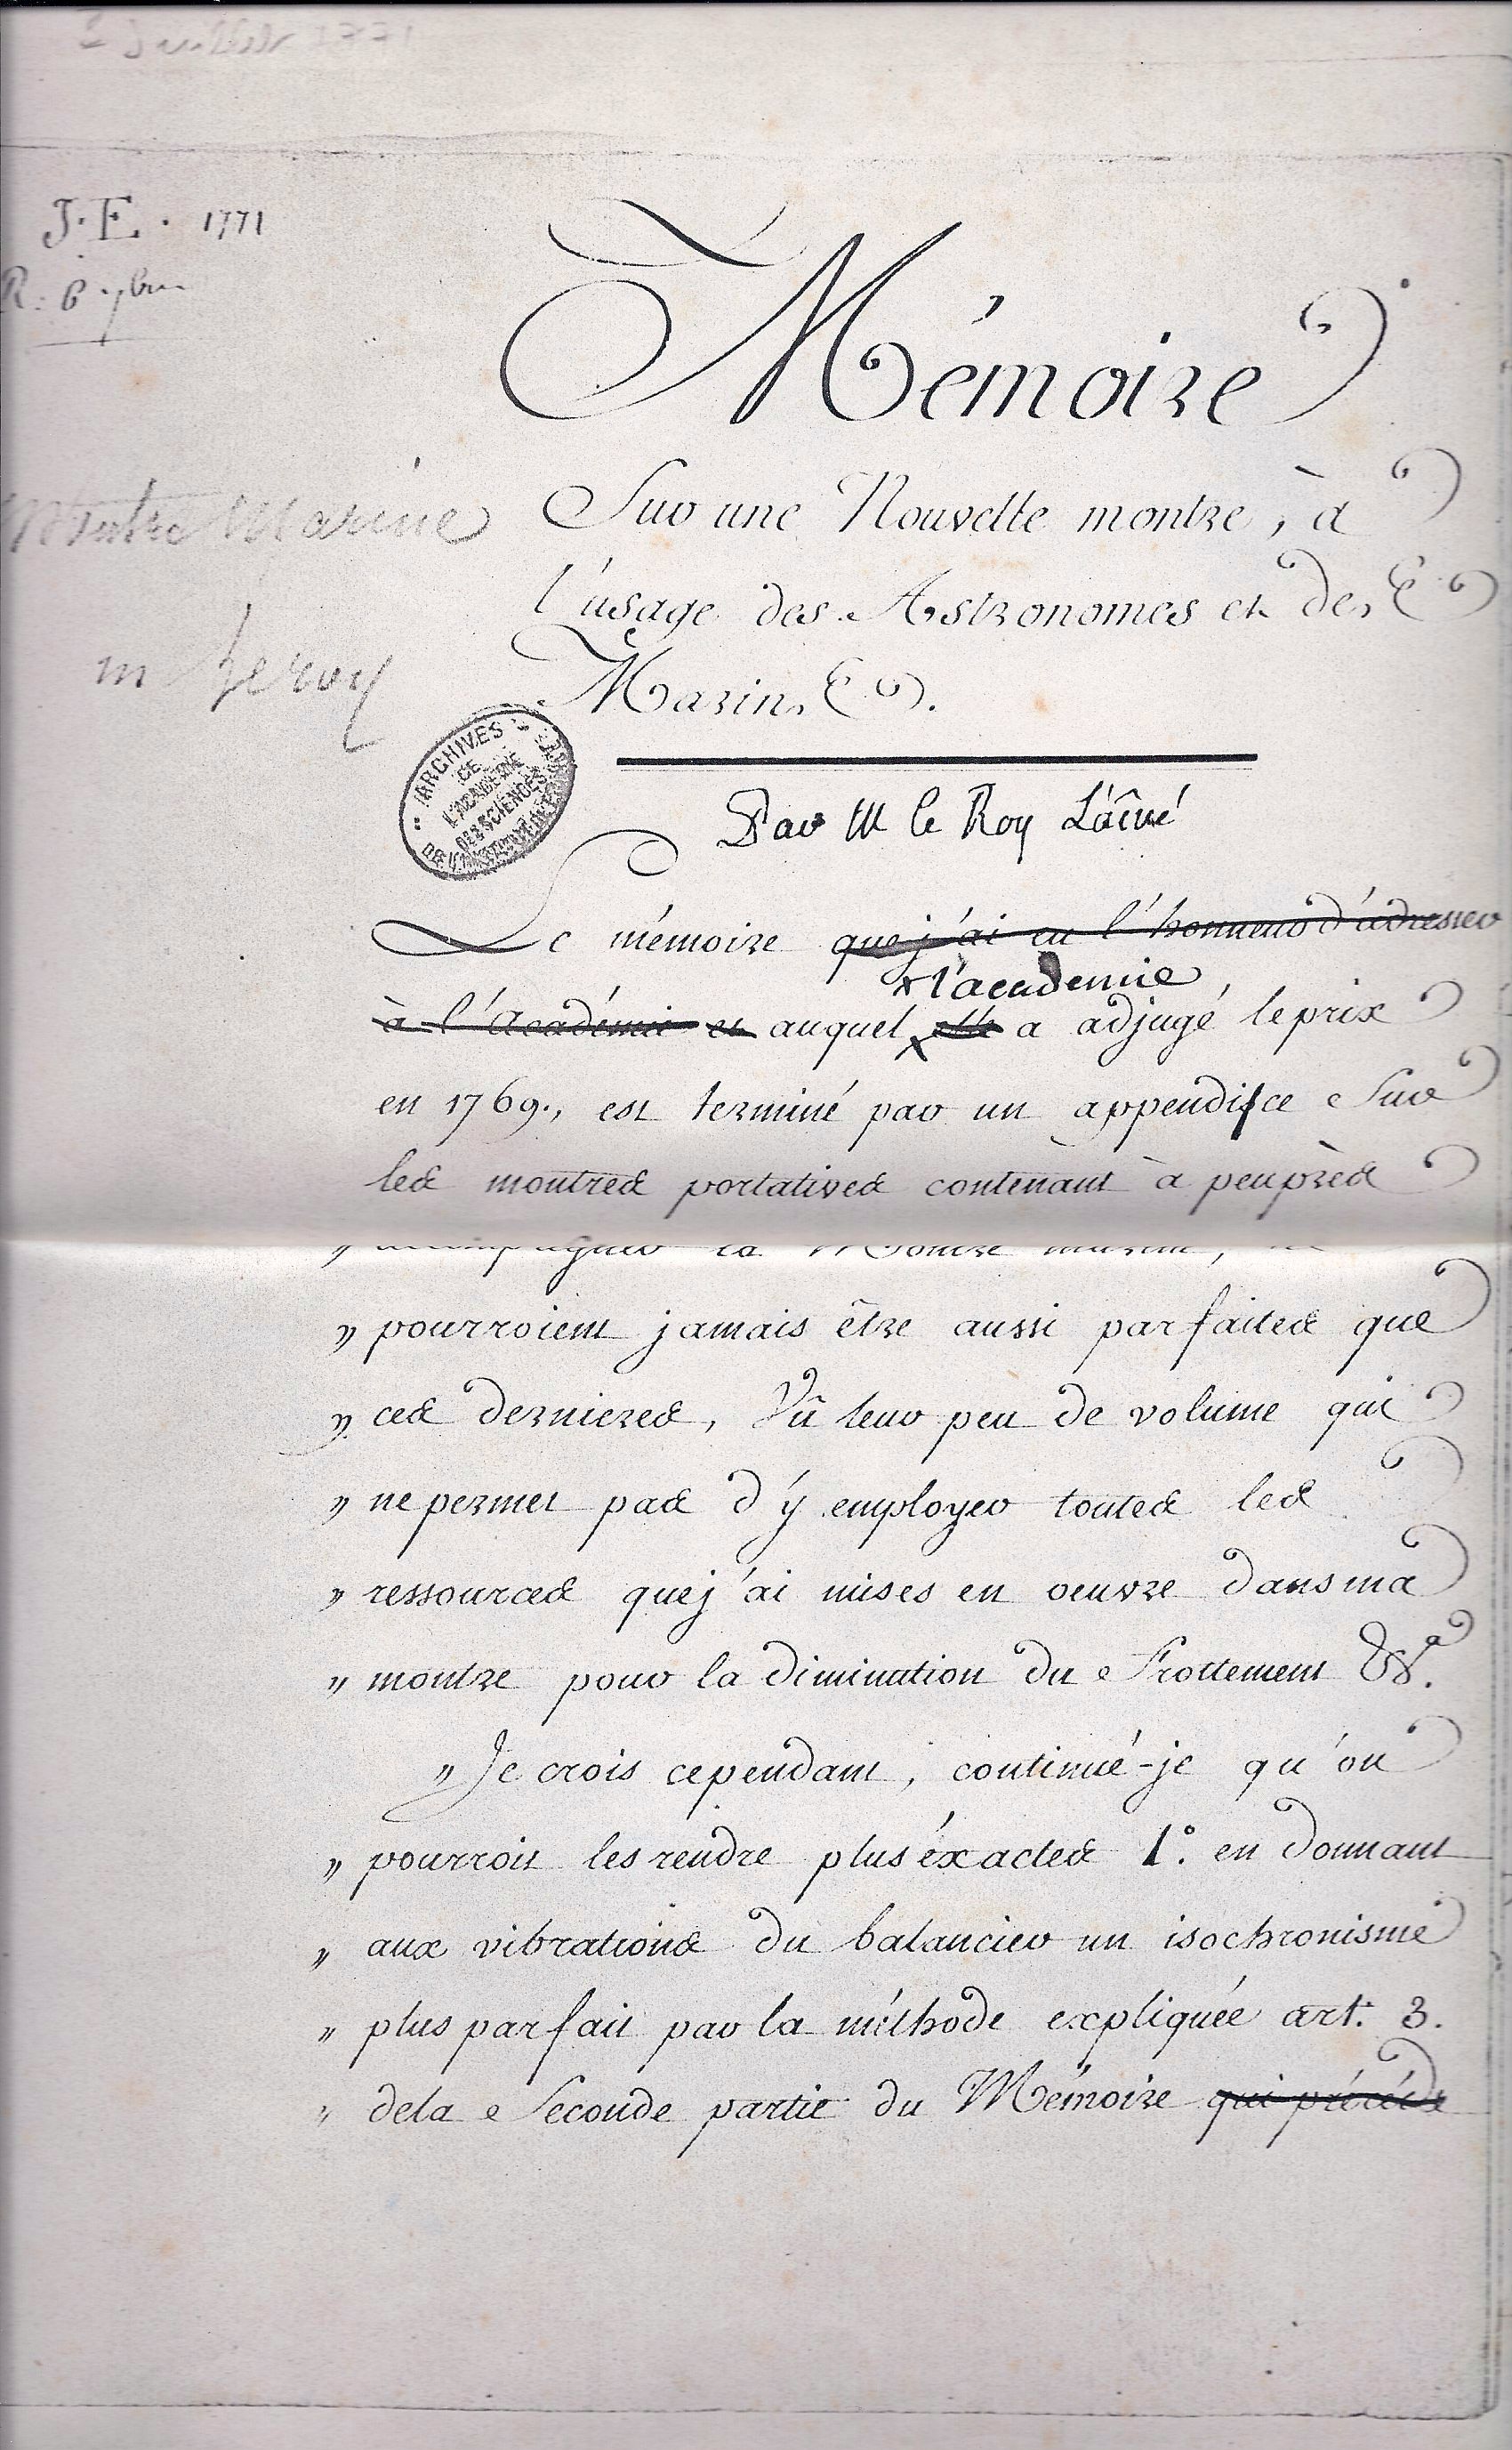 2 Juillet 1771
J. E. 1771
R. 6 7bre
Mémoire
Montre Marine
Sur une Nouvelle montre, à
l'usage des Astronomes et des
m Leroy
Marins.
ARCHIVES DE L'ACADÉMIE DES SCIENCES
Par M le Roy L'aîné
Le mémoire que j'ai eu l'honneur d'adresser
x l'academie
à l'Académie et auquel x elle a adjugé le prix
en 1769., est terminé par un appendisce Sur
les montres portatives contenant à peuprès
" accompagner la Montre marine,
" pourroient jamais être aussi parfaites que
" ces dernieres, Vû leur peu de volume qui
" ne permet pas d'y employer toutes les
" ressources que j'ai mises en oeuvre dans ma
" montre pour la diminution du Frottement &a.
" Je crois cependant, continué-je qu'on
" pourroit les rendre plus éxactes 1.° en donnant
" aux vibrations du balancier un isochronisme
" plus parfait par la méthode expliquée art. 3.
" dela Seconde partie du Mémoire qui précéde